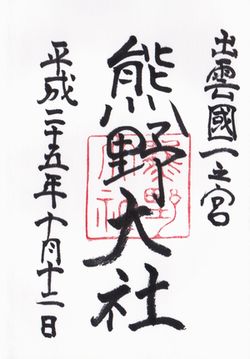 出雲國一之宮
熊野大社
平成二十五年十月十二日